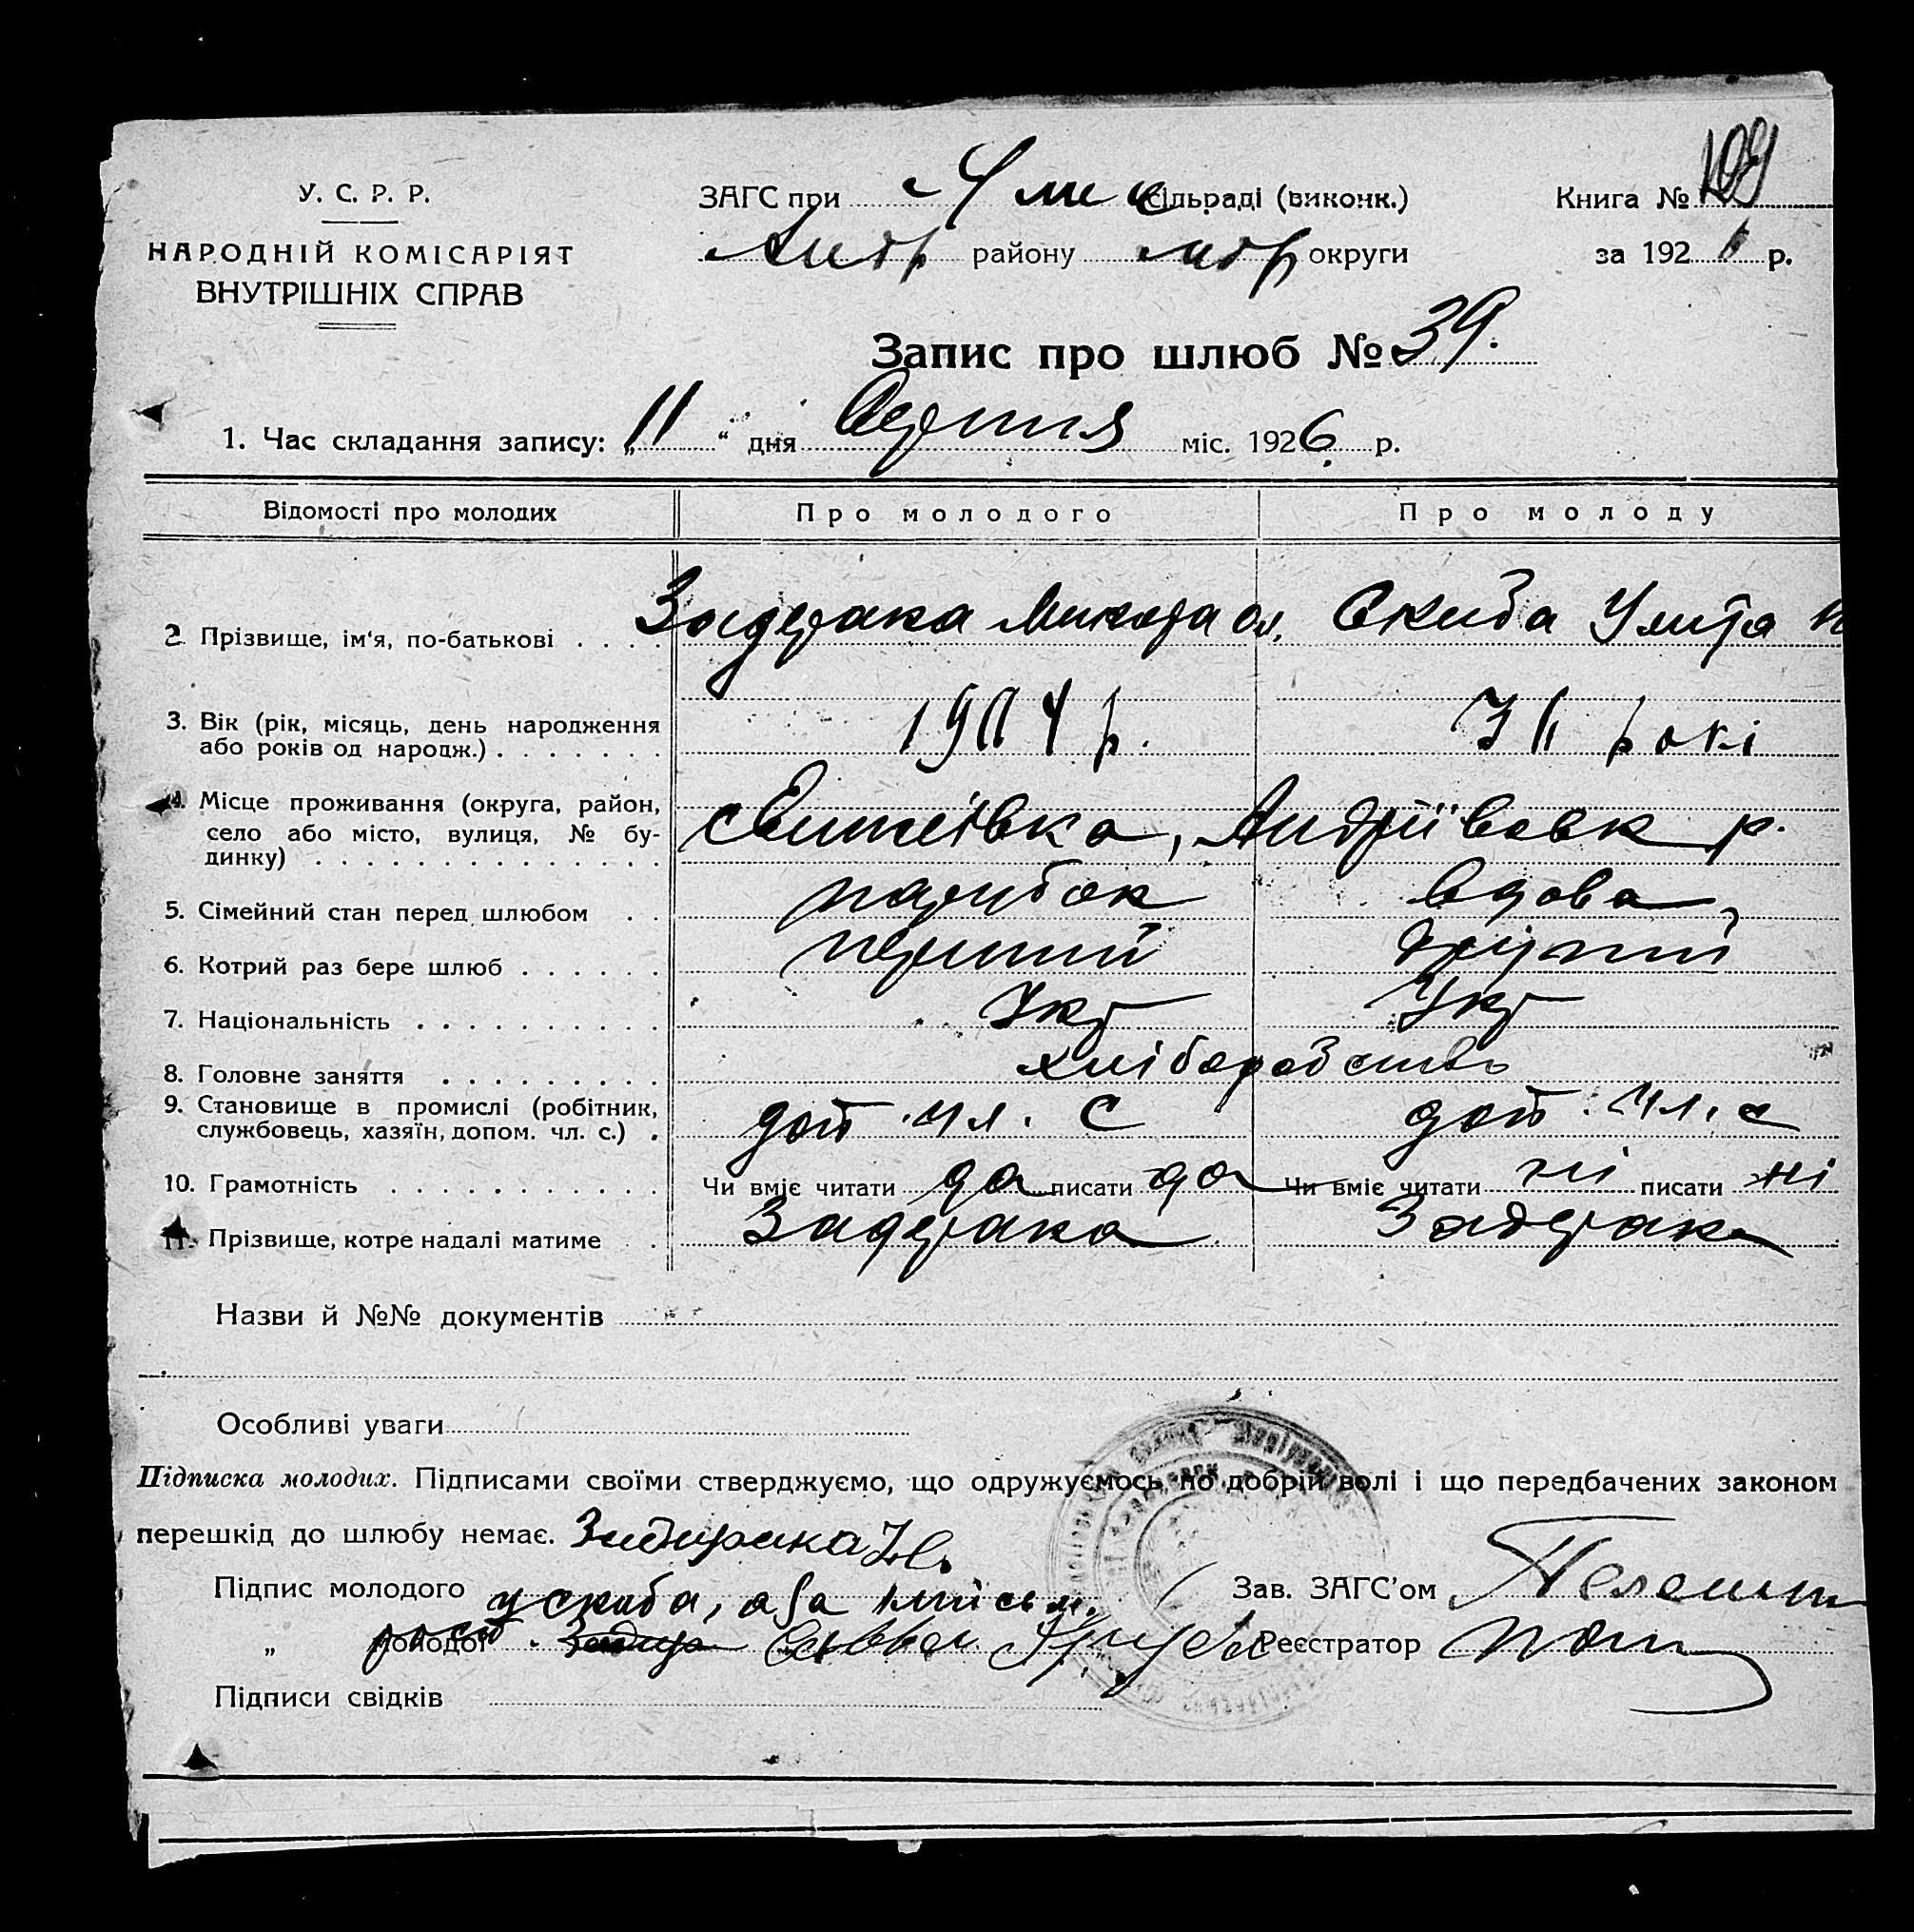 У. С. Р. Р.
НАРОДНІЙ КОМІСАРІЯТ
ВНУТРІШНІХ СПРАВ
ЗАГС при сільраді (виконк.)
Андр району округи
Книга № 109
за 192 р.
Запис про шлюб № 39.
1. Час складання запису: „ 11 “ дня Серпня міс. 1926 р.
Відомості про молодих Про молодого Про молоду
2. Прізвище, ім‘я, по-батькові . . . . Задерака Микола Ол. Скиба Улита
3. Вік (рік, місяць, день народження
або років од народж.) . . . . . . . 1904 р. років
4. Місце проживання (округа, район,
село або місто, вулиця, № бу-
динку) . . . . . . . . . . . . . . Андріївськ р.
5. Сімейний стан перед шлюбом . . парубок вдова
6. Котрий раз бере шлюб . . . . . . перший другий
7. Національність . . . . . . . . . . . Укр Укр
8. Головне заняття . . . . . . . . . хліборобство
9. Становище в промислі (робітник,
службовець, хазяїн, допом. чл. с.) . доп. чл. с доп. чл. с
10. Грамотність . . . . . . . . . . . . Чи вміє читати да писати да Чи вміє читати ні писати ні
11. Прізвище, котре надалі матиме . Задерака Задерака
Назви й №№ документів
Особливі уваги
Підписка молодих. Підписами своїми стверджуємо, що одружуємось по добрій волі і що передбачених законом
перешкід до шлюбу немає.
Підпис молодого Зав. ЗАГС’ом
„ молодої Реєстратор
Підписи свідків